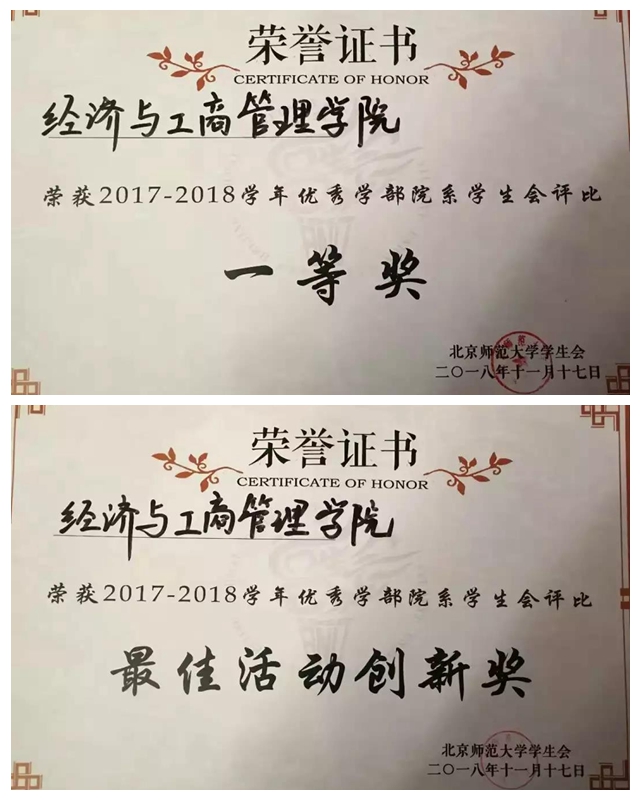 荣誉证书
CERTIFICATE OF HONOR
经济与工商管理学院
荣获2017-2018学年优秀学部院系学生会评比
一等奖
北京师范大学学生会
二〇一八年十一月十七日
荣誉证书
CERTIFICATE OF HONOR
经济与工商管理学院
荣获2017-2018学年优秀学部院系学生会评比
最佳活动创新奖
北京师范大学学生会
二〇一八年十一月十七日